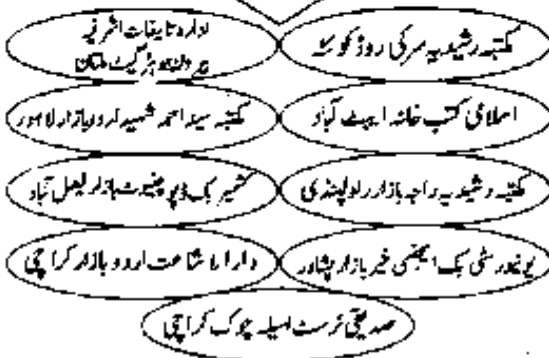 مکتبہ رشیدیہ سرکی روڈ کوئٹہ
ادارہ تالیفات اشرفیہ
بیرون بوہڑ گیٹ ملتان
اسلامی کتب خانہ ایبٹ آباد
مکتبہ سید احمد شہید اردو بازار لاہور
مکتبہ رشیدیہ راجہ بازار راولپنڈی
کشمیر بک ڈپو چنیوٹ بازار فیصل آباد
یونیورسٹی بک ایجنسی خیبر بازار پشاور
دارالاشاعت اردو بازار کراچی
صدیقی ٹرسٹ لسبیلہ چوک کراچی